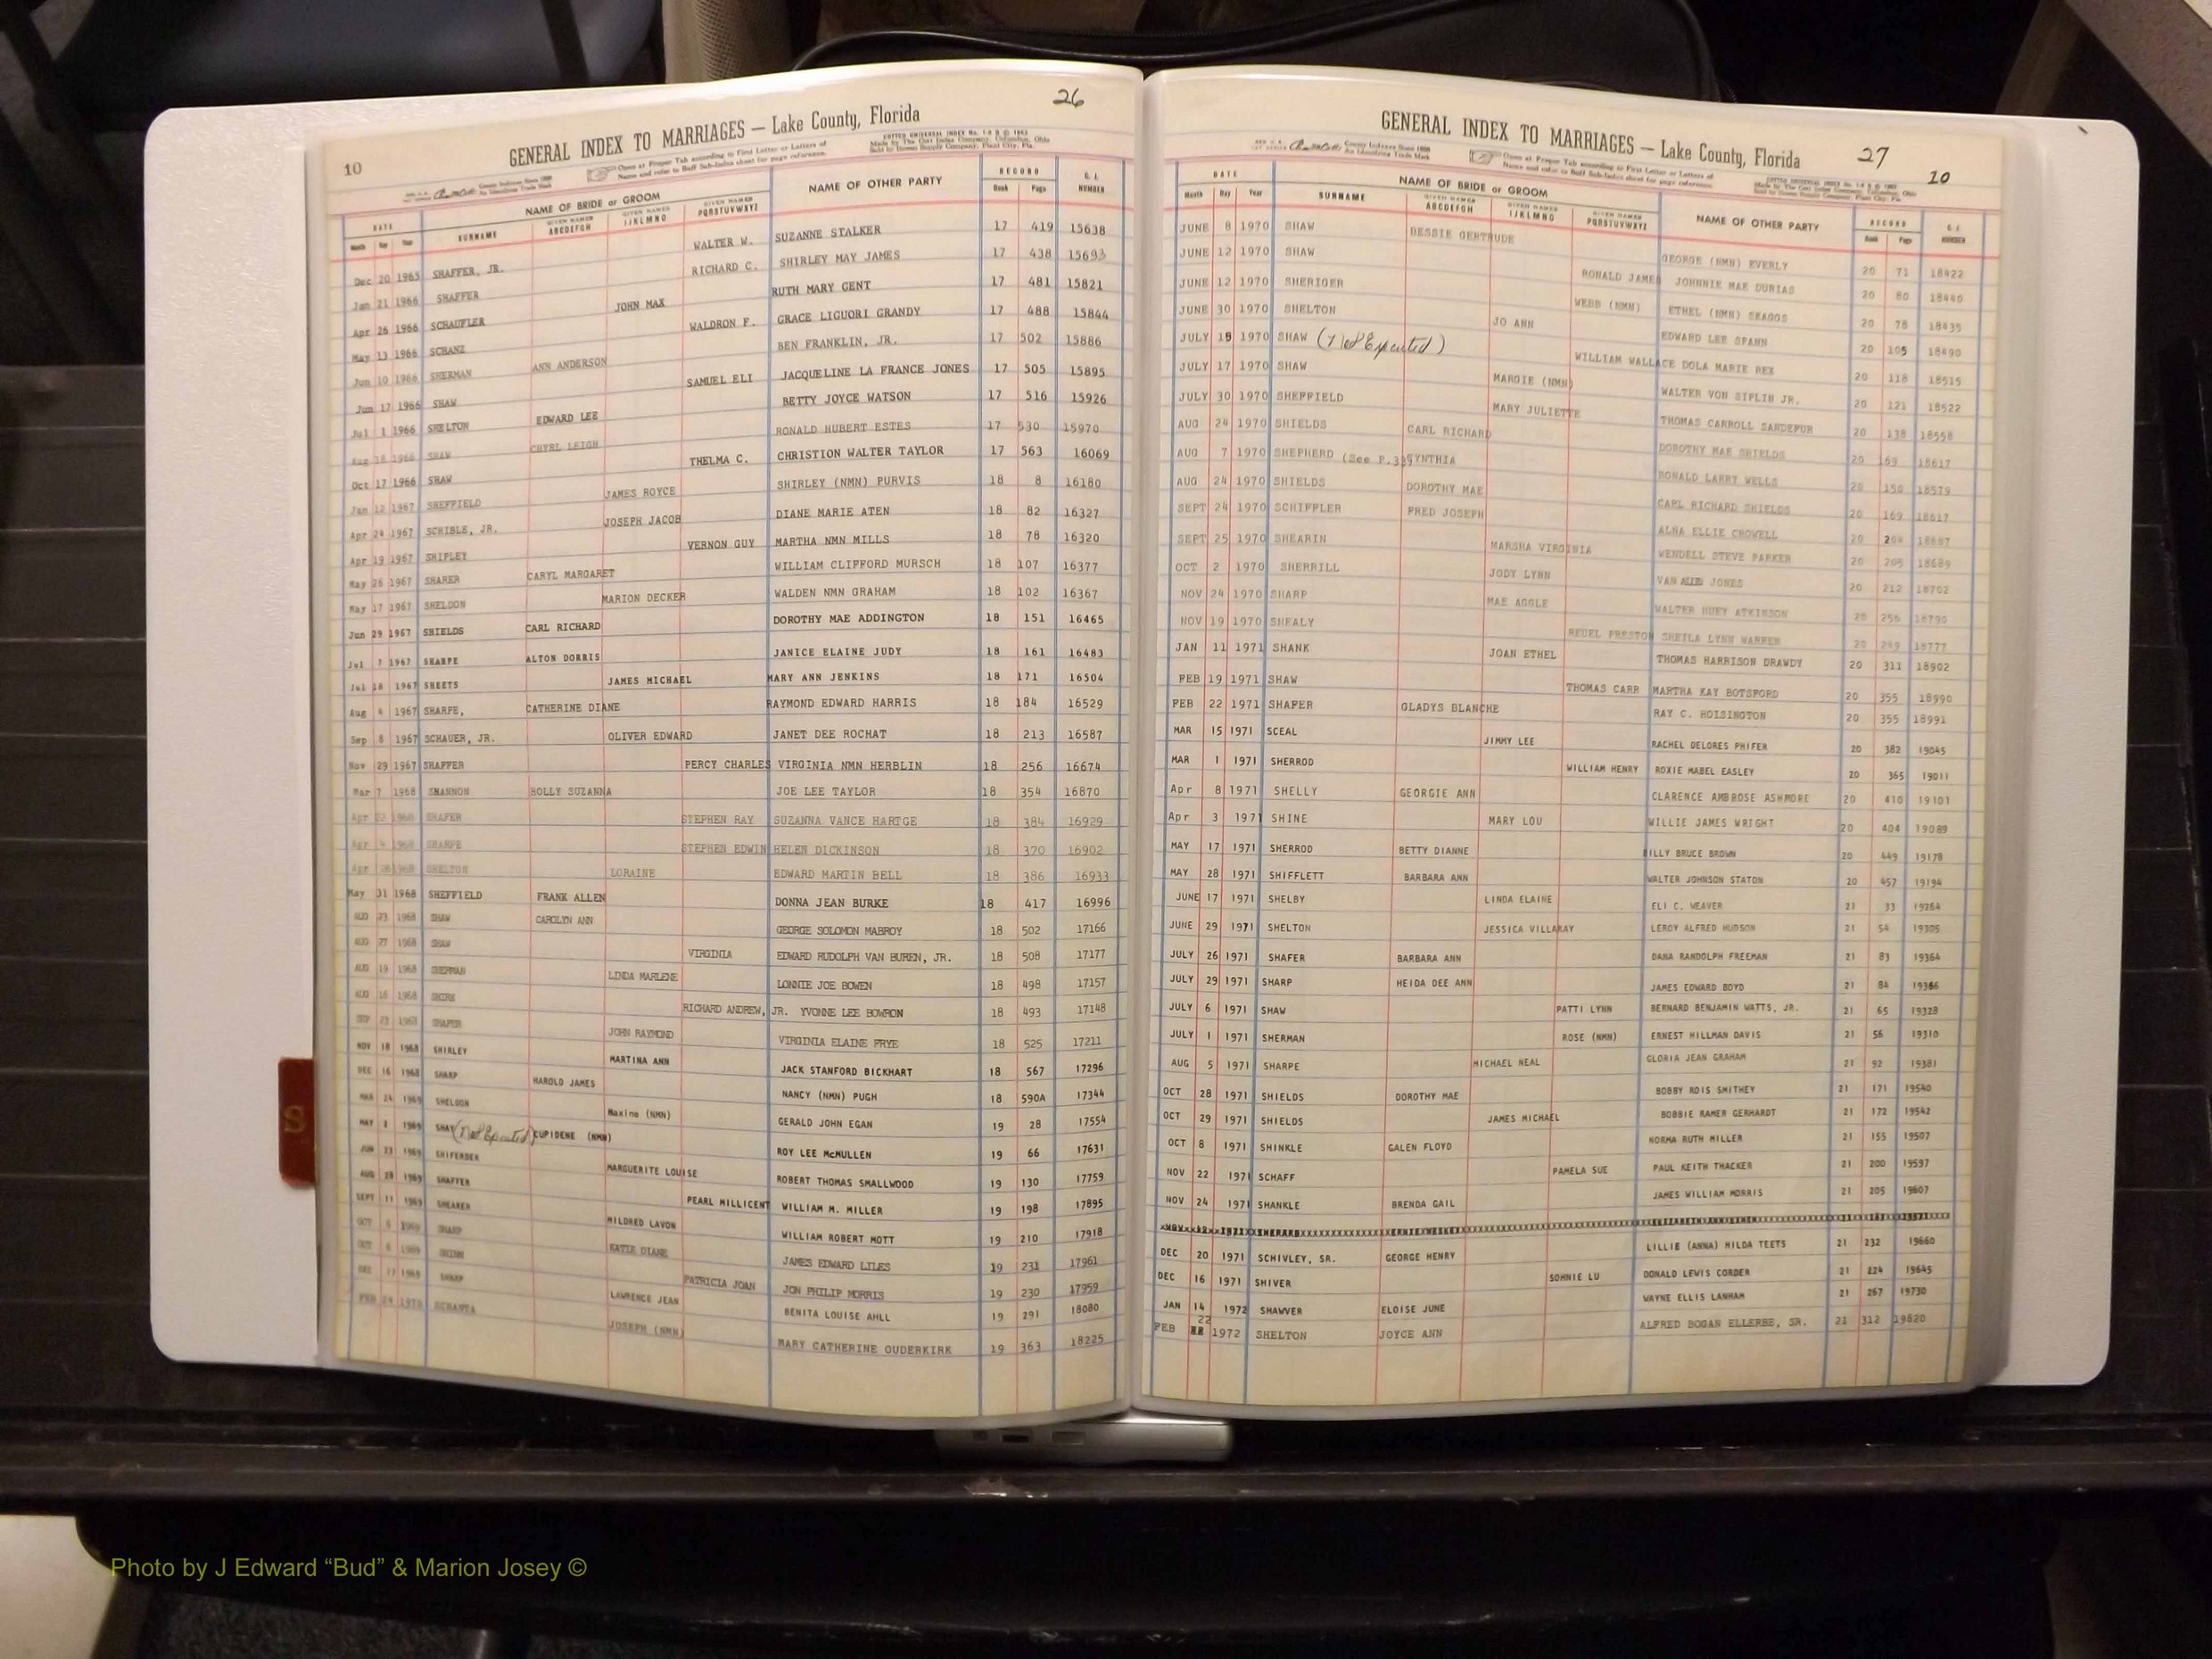 26
10
GENERAL INDEX TO MARRIAGES — Lake County, Florida
Open at Proper Tab according to First Letter or Letters of
Name and refer to Buff Sub-Index sheet for page reference.
DATE NAME OF BRIDE or GROOM NAME OF OTHER PARTY RECORD
GIVEN NAMES GIVEN NAMES GIVEN NAMES
Month Day Year SURNAME ABCDEFGH IJKLMNO PQRSTUVWXYZ Book Page NUMBER
Dec 20 1965 SHAFFER, JR. WALTER W. SUZANNE STALKER 17 419 15638
Jan 21 1966 SHAFFER RICHARD C. SHIRLEY MAY JAMES 17 438 15693
Apr 26 1966 SCHAUFLER JOHN MAX RUTH MARY GENT 17 481 15821
May 13 1966 SCHANZ WALDRON F. GRACE LIGUORI GRANDY 17 488 15844
Jun 10 1966 SHERMAN ANN ANDERSON BEN FRANKLIN, JR. 17 502 15886
Jun 17 1966 SHAW SAMUEL ELI JACQUELINE LA FRANCE JONES 17 505 15895
Jul 1 1966 SHELTON EDWARD LEE BETTY JOYCE WATSON 17 516 15926
Aug 18 1966 SHAW CHYRL LEIGH RONALD HUBERT ESTES 17 530 15970
Oct 17 1966 SHAW THELMA C. CHRISTION WALTER TAYLOR 17 563 16069
Jan 12 1967 SHEFFIELD JAMES ROYCE SHIRLEY (NMN) PURVIS 18 8 16180
Apr 24 1967 SCHIBLE, JR. JOSEPH JACOB DIANE MARIE ATEN 18 82 16327
Apr 19 1967 SHIPLEY VERNON GUY MARTHA NMN MILLS 18 78 16320
May 26 1967 SHARER CARYL MARGARET WILLIAM CLIFFORD MURSCH 18 107 16377
May 17 1967 SHELDON MARION DECKER WALDEN NMN GRAHAM 18 102 16367
Jun 29 1967 SHIELDS CARL RICHARD DOROTHY MAE ADDINGTON 18 151 16465
Jul 7 1967 SHARPE ALTON DORRIS JANICE ELAINE JUDY 18 161 16483
Jul 18 1967 SHEETS JAMES MICHAEL MARY ANN JENKINS 18 171 16504
Aug 4 1967 SHARPE, CATHERINE DIANE RAYMOND EDWARD HARRIS 18 184 16529
Sep 8 1967 SCHAUER, JR. OLIVER EDWARD JANET DEE ROCHAT 18 213 16587
Nov 29 1967 SHAFFER PERCY CHARLES VIRGINIA NMN HERBLIN 18 256 16674
Mar 7 1968 SHANNON HOLLY SUZANNA JOE LEE TAYLOR 18 354 16870
Apr 22 1968 SHAFER STEPHEN RAY SUZANNA VANCE HARTGE 18 384 16929
Apr 4 1968 SHARPE STEPHEN EDWIN HELEN DICKINSON 18 370 16902
Apr 26 1968 SHELTON LORAINE EDWARD MARTIN BELL 18 386 16933
May 31 1968 SHEFFIELD FRANK ALLEN DONNA JEAN BURKE 18 417 16996
AUG 23 1968 SHAW CAROLYN ANN GEORGE SOLOMON MABROY 18 502 17166
AUG 27 1968 SHAW VIRGINIA EDWARD RUDOLPH VAN BUREN, JR. 18 508 17177
AUG 19 1968 SHERMAN LINDA MARLENE LONNIE JOE BOWEN 18 498 17157
AUG 16 1968 SHIRK RICHARD ANDREW, JR. YVONNE LEE BOWRON 18 493 17148
SEP 23 1968 SHAFER JOHN RAYMOND VIRGINIA ELAINE FRYE 18 525 17211
NOV 18 1968 SHIRLEY MARTINA ANN JACK STANFORD BICKHART 18 567 17296
DEC 16 1968 SHARP HAROLD JAMES NANCY (NMN) PUGH 18 590A 17344
MAR 24 1969 SHELDON Maxine (NMN) GERALD JOHN EGAN 19 28 17554
MAY 8 1969 SHAY (Not Executed) CUPIDENE (NMN) ROY LEE McMULLEN 19 66 17631
JUN 23 1969 SHIFENDER MARGUERITE LOUISE ROBERT THOMAS SMALLWOOD 19 130 17759
AUG 28 1969 SHAFFER PEARL MILLICENT WILLIAM M. MILLER 19 198 17895
SEPT 11 1969 SHEARER MILDRED LAVON WILLIAM ROBERT MOTT 19 210 17918
OCT 6 1969 SHARP KATIE DIANE JAMES EDWARD LILES 19 231 17961
OCT 6 1969 PATRICIA JOAN JON PHILIP MORRIS 19 230 17959
DEC 17 1969 SHARP LAWRENCE JEAN BENITA LOUISE AHLL 19 291 18080
FEB 24 1970 SCHANTA JOSEPH (NMN) MARY CATHERINE OUDERKIRK 19 363 18225
S
27
10
GENERAL INDEX TO MARRIAGES — Lake County, Florida
Open at Proper Tab according to First Letter or Letters of
Name and refer to Buff Sub-Index sheet for page reference.
DATE NAME OF BRIDE or GROOM NAME OF OTHER PARTY RECORD
GIVEN NAMES GIVEN NAMES GIVEN NAMES
Month Day Year SURNAME ABCDEFGH IJKLMNO PQRSTUVWXYZ Book Page NUMBER
JUNE 8 1970 SHAW DESSIE GERTRUDE GEORGE (NMN) EVERLY 20 71 18422
JUNE 12 1970 SHAW RONALD JAMES JOHNNIE MAE DURIAS 20 80 18440
JUNE 12 1970 SHERIGER WEBB (NMN) ETHEL (NMN) SKAGGS 20 78 18435
JUNE 30 1970 SHELTON JO ANN EDWARD LEE SPANN 20 105 18490
JULY 15 1970 SHAW (Not Executed) WILLIAM WALLACE DOLA MARIE REX 20 118 18515
JULY 17 1970 SHAW MARGIE (NMN) WALTER VON SIPLIN JR. 20 121 18522
JULY 30 1970 SHEFFIELD MARY JULIETTE THOMAS CARROLL SANDEFUR 20 138 18558
AUG 24 1970 SHIELDS CARL RICHARD DOROTHY MAE SHIELDS 20 169 18617
AUG 7 1970 SHEPHERD (See P.33) CYNTHIA RONALD LARRY WELLS 20 150 18579
AUG 24 1970 SHIELDS DOROTHY MAE CARL RICHARD SHIELDS 20 169 18617
SEPT 24 1970 SCHIFFLER FRED JOSEPH ALNA ELLIE CROWELL 20 204 18687
SEPT 25 1970 SHEARIN MARSHA VIRGINIA WENDELL STEVE PARKER 20 205 18689
OCT 2 1970 SHERRILL JODY LYNN VAN ALLEN JONES 20 212 18702
NOV 24 1970 SHARP MAE AGGLE WALTER HUEY ATKINSON 20 256 18790
NOV 19 1970 SHEALY REUEL PRESTON SHEILA LYNN WARREN 20 249 18777
JAN 11 1971 SHANK JOAN ETHEL THOMAS HARRISON DRAWDY 20 311 18902
FEB 19 1971 SHAW THOMAS CARR MARTHA KAY BOTSFORD 20 355 18990
FEB 22 1971 SHAFER GLADYS BLANCHE RAY C. HOISINGTON 20 355 18991
MAR 15 1971 SCEAL JIMMY LEE RACHEL DELORES PHIFER 20 382 19045
MAR 1 1971 SHERROD WILLIAM HENRY ROXIE MABEL EASLEY 20 365 19011
Apr 8 1971 SHELLY GEORGIE ANN CLARENCE AMBROSE ASHMORE 20 410 19101
Apr 3 1971 SHINE MARY LOU WILLIE JAMES WRIGHT 20 404 19089
MAY 17 1971 SHERROD BETTY DIANNE BILLY BRUCE BROWN 20 449 19178
MAY 28 1971 SHIFFLETT BARBARA ANN WALTER JOHNSON STATON 20 457 19194
JUNE 17 1971 SHELBY LINDA ELAINE ELI C. WEAVER 21 33 19264
JUNE 29 1971 SHELTON JESSICA VILLARAY LEROY ALFRED HUDSON 21 54 19305
JULY 26 1971 SHAFER BARBARA ANN DANA RANDOLPH FREEMAN 21 83 19364
JULY 29 1971 SHARP HEIDA DEE ANN JAMES EDWARD BOYD 21 84 19366
JULY 6 1971 SHAW PATTI LYNN BERNARD BENJAMIN WATTS, JR. 21 65 19328
JULY 1 1971 SHERMAN ROSE (NMN) ERNEST HILLMAN DAVIS 21 56 19310
AUG 5 1971 SHARPE MICHAEL NEAL GLORIA JEAN GRAHAM 21 92 19381
OCT 28 1971 SHIELDS DOROTHY MAE BOBBY ROIS SMITHEY 21 171 19540
OCT 29 1971 SHIELDS JAMES MICHAEL BOBBIE RAMER GERHARDT 21 172 19542
OCT 8 1971 SHINKLE GALEN FLOYD NORMA RUTH MILLER 21 155 19507
NOV 22 1971 SCHAFF PAMELA SUE PAUL KEITH THACKER 21 200 19597
NOV 24 1971 SHANKLE BRENDA GAIL JAMES WILLIAM MORRIS 21 205 19607
DEC 20 1971 SCHIVLEY, SR. GEORGE HENRY LILLIE (ANNA) HILDA TEETS 21 232 19660
DEC 16 1971 SHIVER SONNIE LU DONALD LEWIS CORDER 21 224 19645
JAN 14 1972 SHAWVER ELOISE JUNE WAYNE ELLIS LANHAM 21 267 19730
FEB 22 1972 SHELTON JOYCE ANN ALFRED BOGAN ELLERBE, SR. 21 312 19820
Photo by J Edward “Bud” & Marion Josey ©